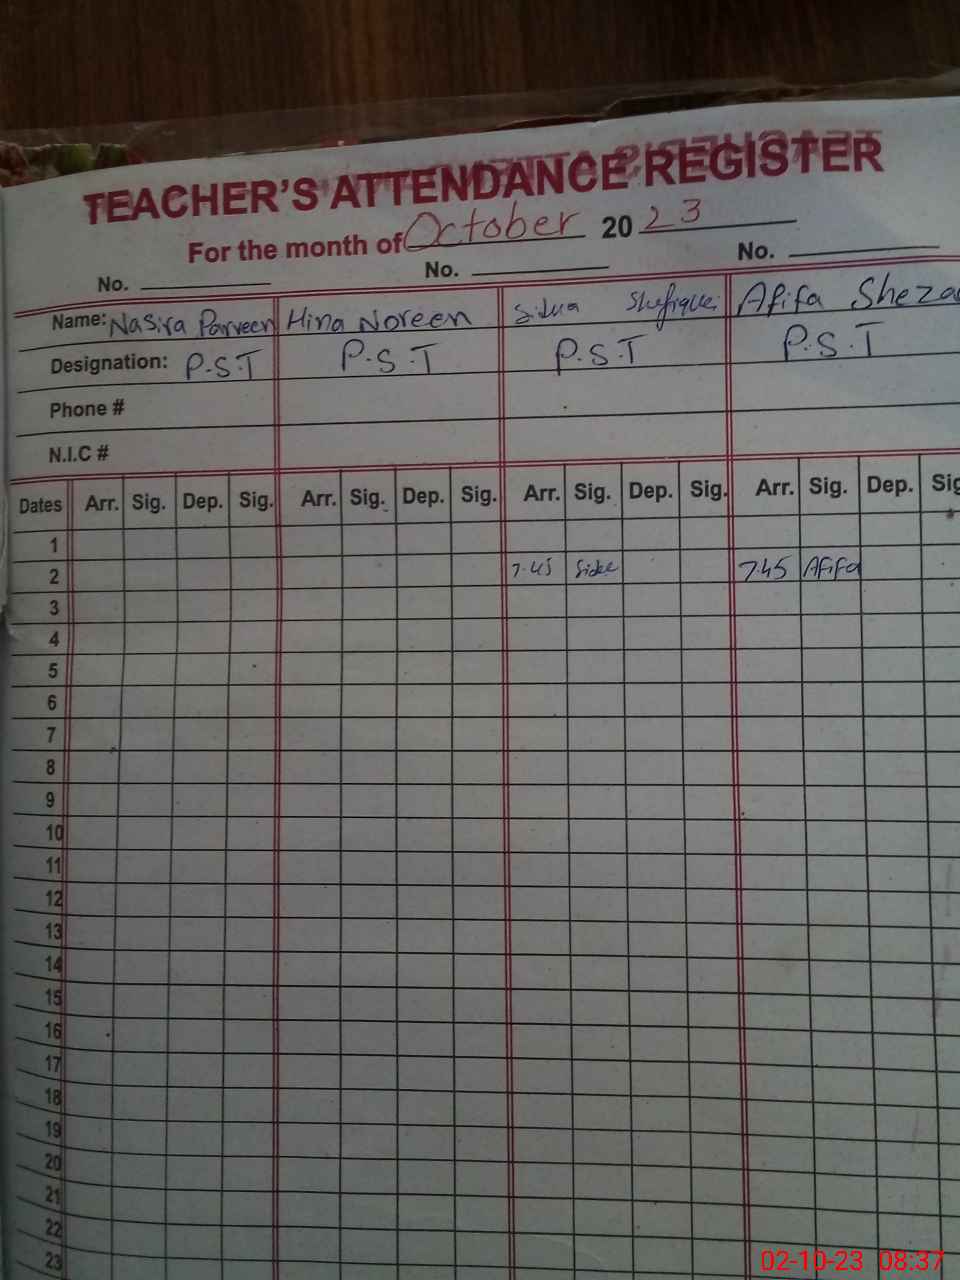 TEACHER'S ATTENDANCE REGISTER
For the month of October 2023
No. No. No.
Name: Nasira Parveen Hina Noreen Sidua Shafique Afifa
Designation: P.S.T P.S.T P.S.T P.S.T
Phone #
N.I.C #
Dates Arr. Sig. Dep. Sig. Arr. Sig. Dep. Sig. Arr. Sig. Dep. Sig. Arr. Sig. Dep. Sig
1
2 7.45 7.45 Afifa
3
4
5
6
7
8
9
10
11
12
13
14
15
16
17
18
19
20
21
22
23
02-10-23 08:37